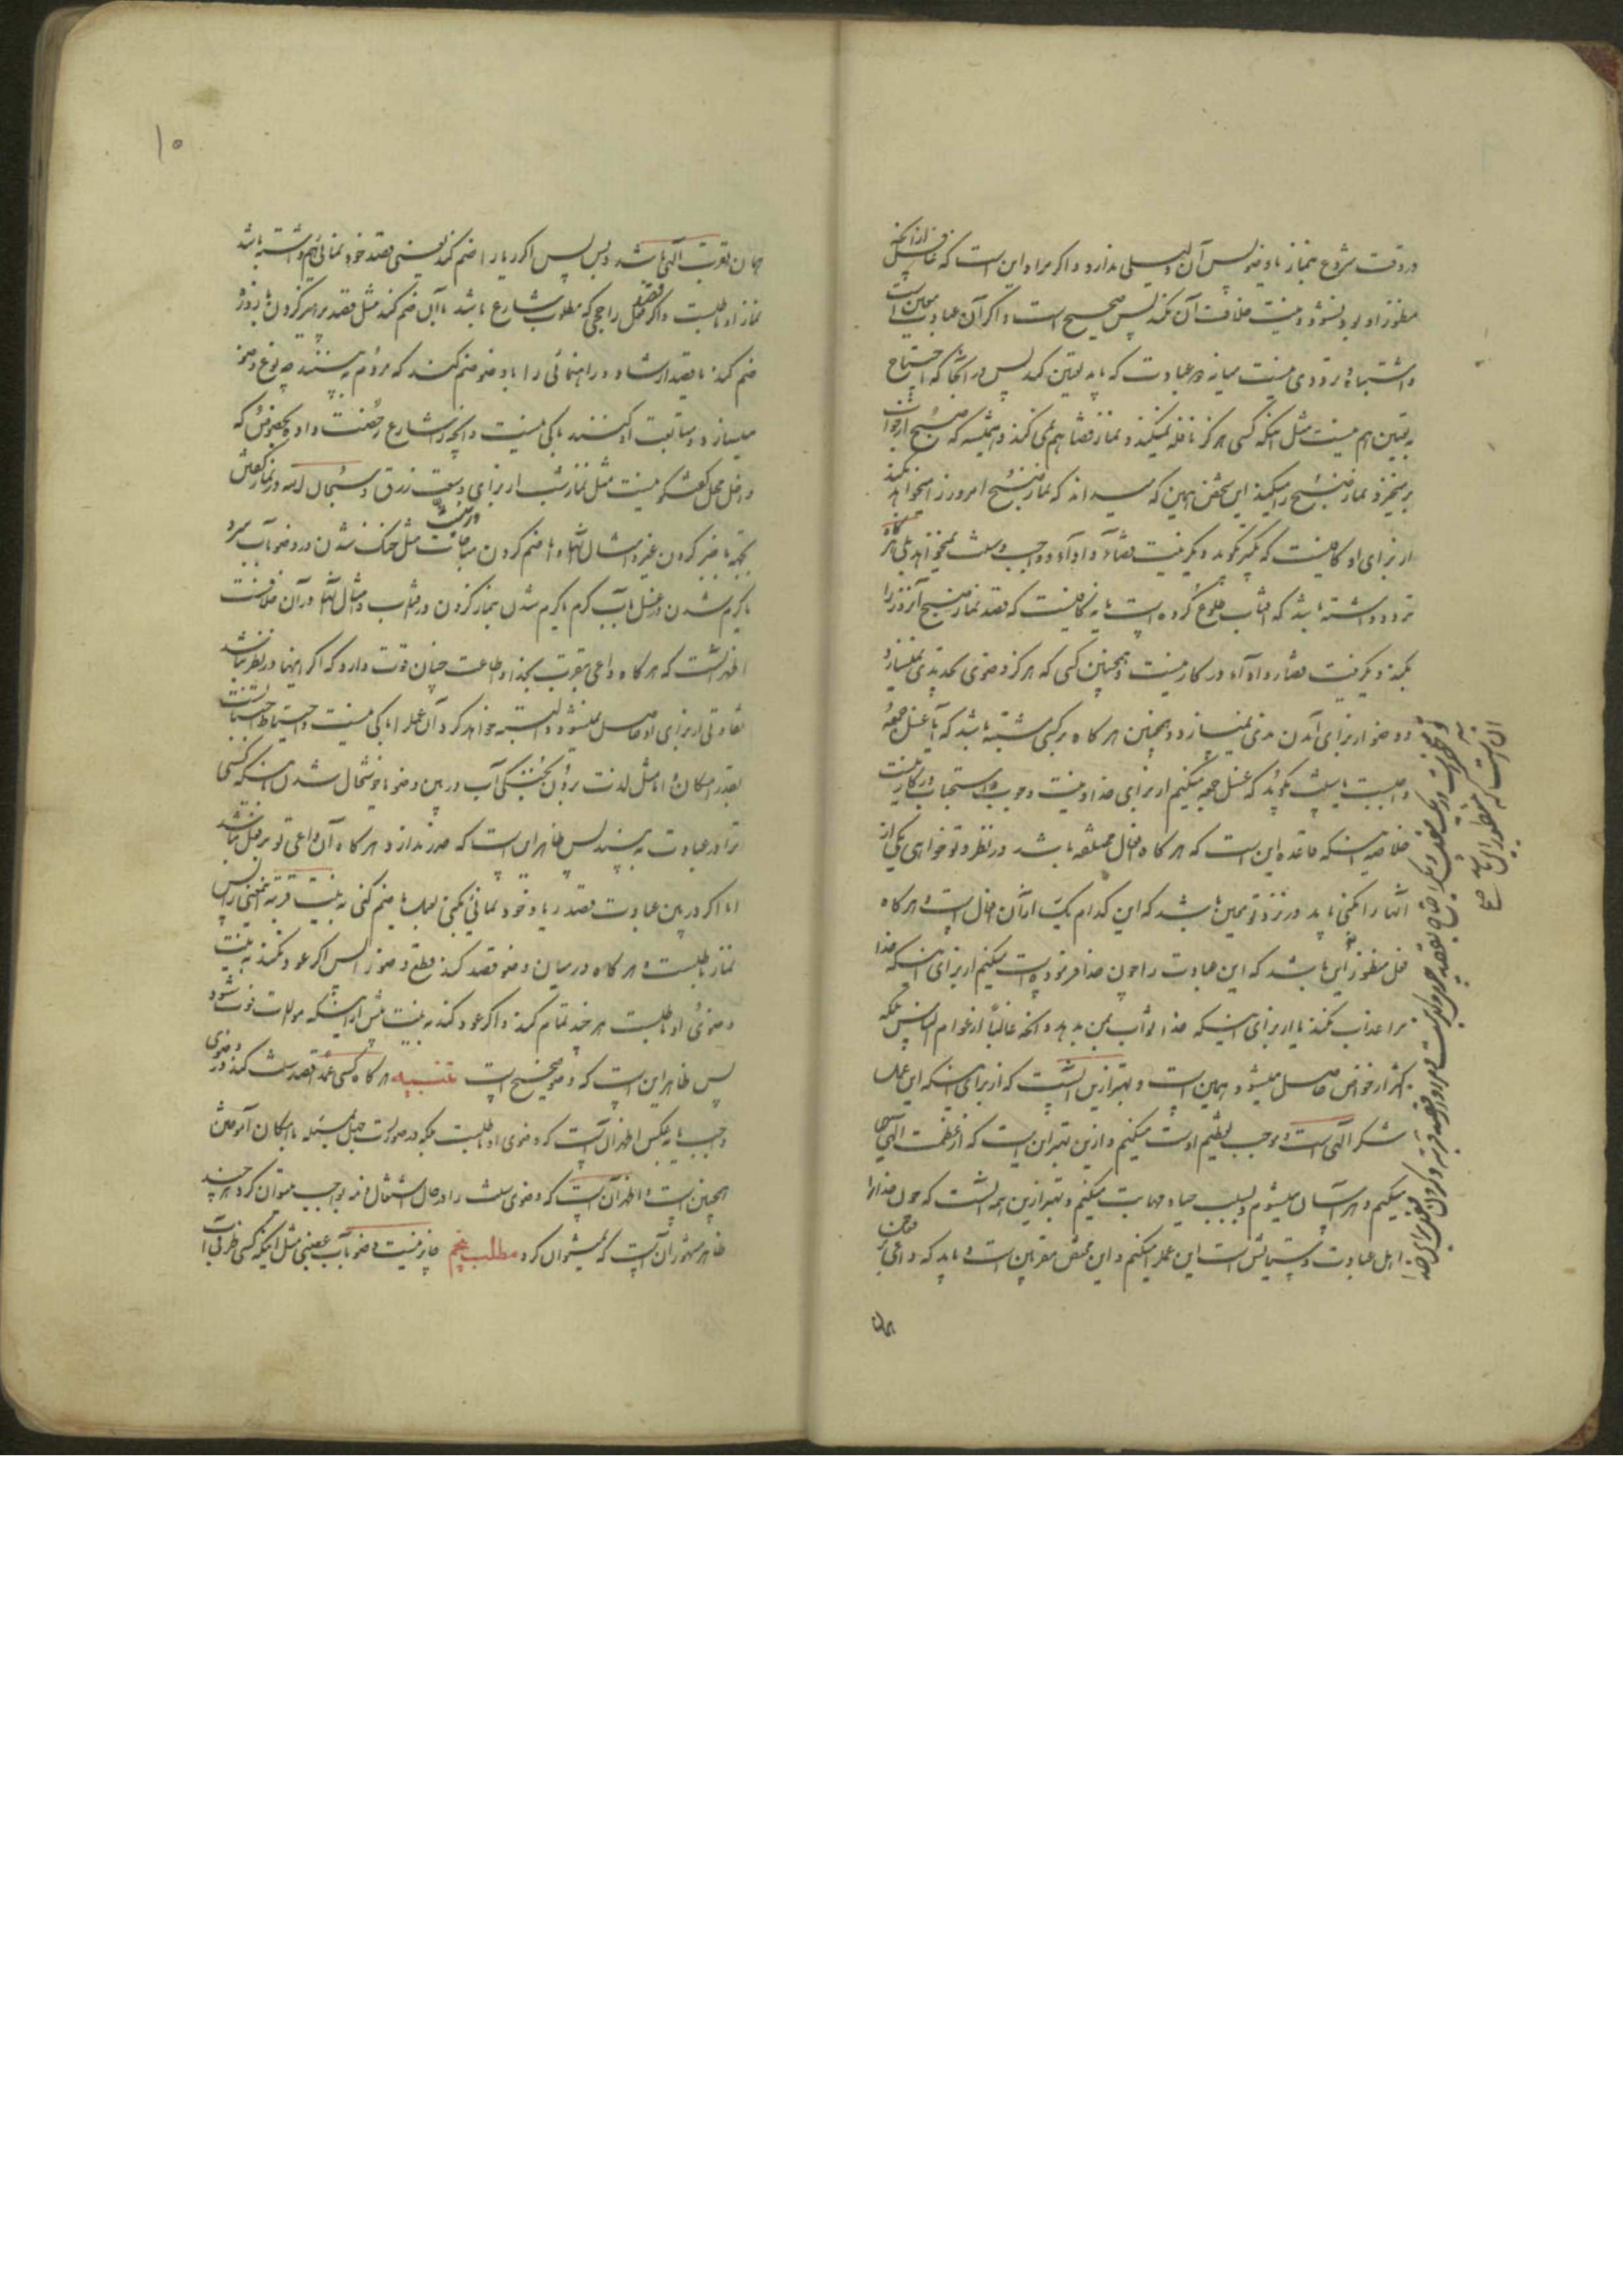 در وقت شروع بنماز یا وضو پس آن دلیلی ندارد و اگر مراد این است که غافل از آنچه
منظور او بود نشود و نیت خلاف آن نکند پس صحیح است و اگر آن عبادت معین است
و اشتباه و ترددی نیست میانه دو عبادت که باید تعیین کند پس در آنجا که احتیاج
به تعیین هم نیست مثل آنکه کسی هرگز نافله نمیکند و نماز قضا هم نمی کند و همیشه که صبح از خواب
بر میخیزد نماز صبح را میکند این شخص همین که میداند که نماز صبح امروز را میخواهد بکند
از برای او کافیست که تکبیر بگوید و دیگر نیت قضاء و اداء و وجوب و سنت نمیخواهد بلی هر گاه
تردد داشته باشد که آفتاب طلوع کرده است یا نه کافیست که قصد نماز صبح آنروز را
بکند و دیگر نیت قضا و اداء در کار نیست و همچنین کسی که هرگز وضوی تجدیدی نمیسازد
و وضو از برای آمدن مذی نمیسازد و همچنین هر گاه بر کسی مشتبه باشد که آیا غسل جمعه
واجبست یا سنت بگوید که غسل جمعه میکنم از برای خدا و نیت وجوب و استحباب در کار نیست
خلاصه اینکه قاعده این است که هر گاه افعال مختلفه باشد در نظر و تو خواهی یکی از
آنها را بکنی باید در نزد تو معین باشد که این کدام یک از آن افعال است و هر گاه
منظور این باشد که این عبادت را چون خدا فرموده است میکنم از برای اینکه خدا
مرا عذاب نکند یا از برای اینکه خدا ثواب بمن بدهد و آنچه غالباً از عوام الناس بلکه
اکثر از خواص حاصل میشود همین است و بهتر ازین آنست که از برای اینکه این عمل
شکر الهی است و موجب تعظیم اوست میکنم و ازین بهتر این است که از عظمت الهی
میکنم و هراسان میشوم و بسبب حیا و مهابت میکنم و بهتر ازین همه آنست که چون خدا را
اهل عبادت و ستایش است این عمل را میکنم و این مختص مقربین است و باید که داعی بر
همان
آن است که منظور این باشد صح
۱۰
همان تقرب الهی باشد و بس پس اگر ریا را ضم کند یعنی قصد خود نمائی هم داشته باشد
نماز او باطلست و اگر قصد فعل راجحی که مطلوب شارع باشد با آن ضم کند مثل قصد پرهیز کردن با روزه
ضم کند یا قصد ارشاد و راهنمائی را با وضو ضم کند که مردم به بینند چه نوع وضو
میسازد و متابعت او کنند باکی نیست و آنچه را شارع رخصت داده بخصوص که
داخل محل گفتگو نیست مثل نماز شب از برای وسعت رزق و سبحان الله در نماز گفتن
بجهة با خبر کردن غیر و امثال آنها و اما ضم کردن مباحات در نیت مثل خنک شدن در وضو بآب سرد
یا گرم شدن در غسل بآب گرم یا گرم شدن بنماز کردن در آفتاب و امثال آنها در آن خلافست
اظهر آنست که هر گاه داعی تقرب بخدا و اطاعت چنان قوت دارد که اگر اینها در نظر نباشد
تفاوتی از برای او حاصل نمیشود و البته خواهد کرد آن عمل را باکی نیست و احتیاط اجتناب است
بقدر امکان و اما مثل لذت بردن بخنکی آب در بین وضو یا خوشحال شدن اینکه کسی
ترا در عبادت به بیند پس ظاهر این است که ضرر ندارد و هر گاه آن داعی تو بر فعل نباشد
اما اگر در بین عبادت قصد ریا و خود نمائی بکنی یا ضم کنی به نیت قربة پس
نماز باطلست و هر گاه در میان وضو قصد کند قطع وضو را پس اگر عود نکند به نیت
وضوی او باطلست هر چند تمام کند و اگر عود کند به نیت پیش از اینکه موالات فوت شود
پس ظاهر این است که وضو صحیح است تنبیه هر گاه کسی عمداً قصد سنت کند در وضوی
واجب یا به عکس اظهر آن است که وضوی او باطلست بلکه در صورت جهل بمسئله با امکان آموختن
همچنین است و اظهر آن است که وضوی سنت را در حال اشتغال ذمه بواجب میتوان کرد هر چند
ظاهر مشهور آن است که نمیتوان کرد مطلب پنجم جایز نیست وضو بآب غصبی مثل اینکه کسی ظرف آب